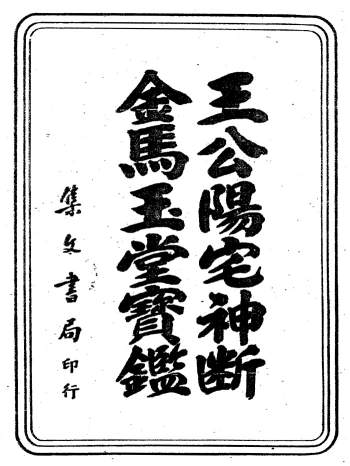 王公陽宅神断
金馬玉堂寶鑑
集文書局印行